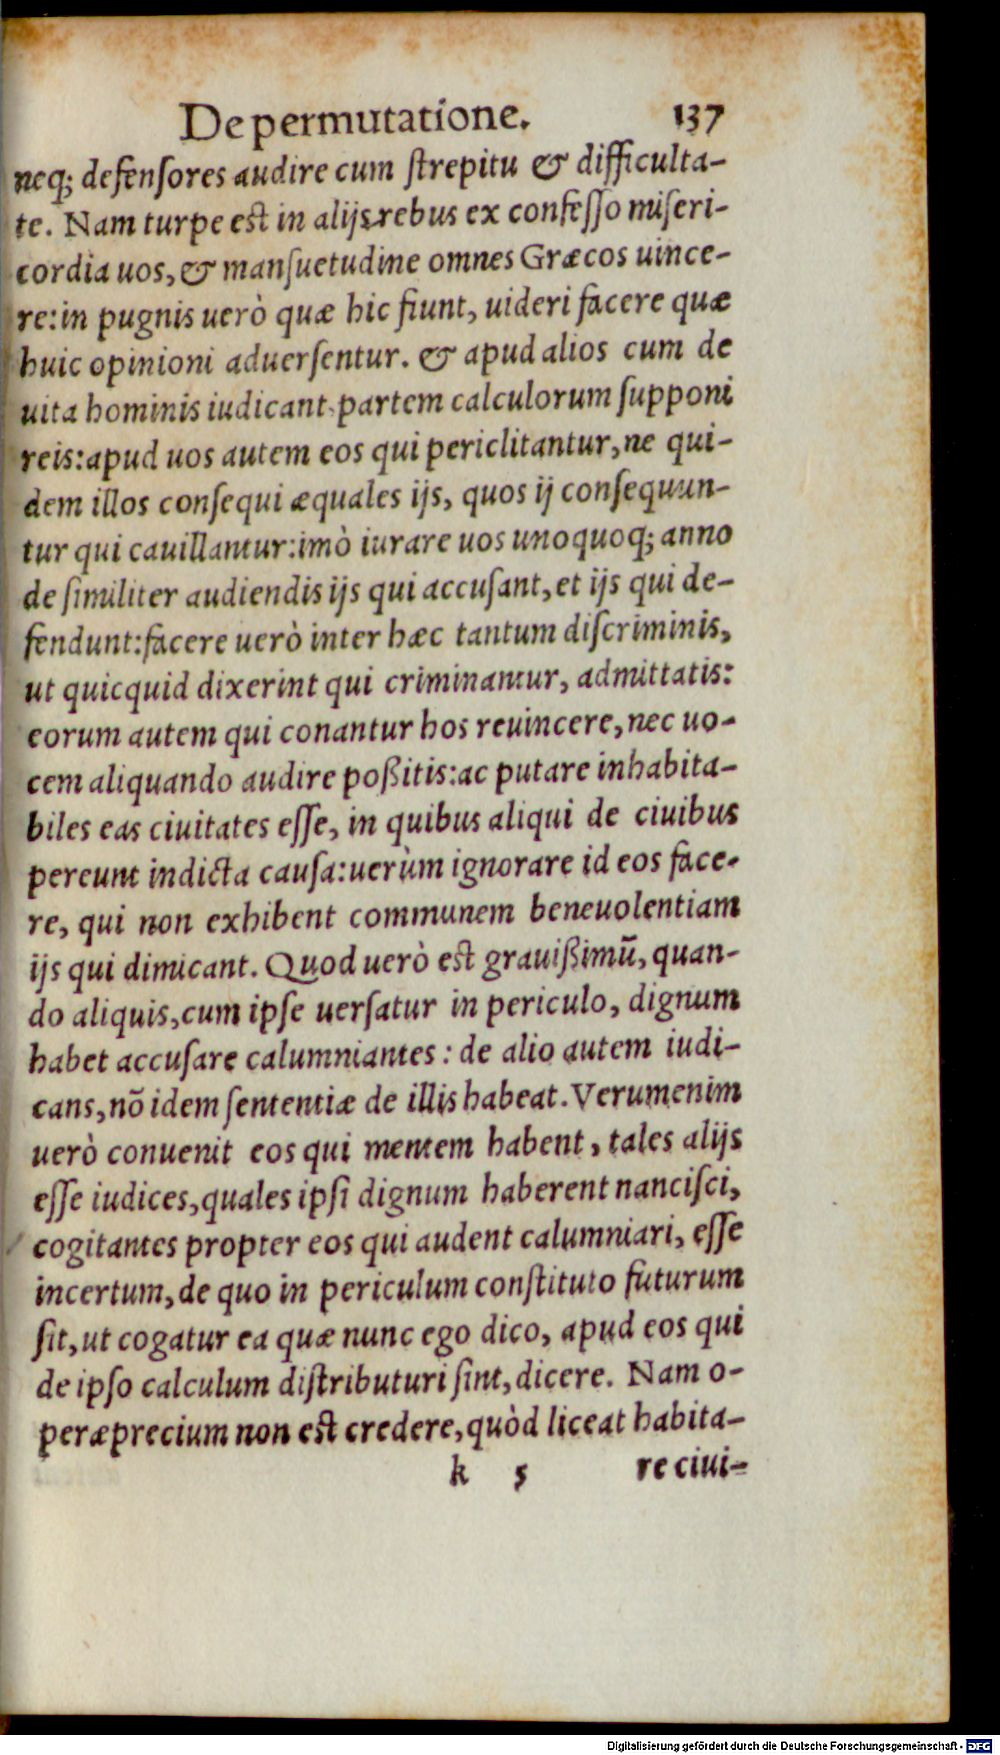 De permutatione. 137
neq; defenſores audire cum ſtrepitu & difficulta-
te. Nam turpe est in alijs rebus ex confeſſo miſeri-
cordia uos, & manſuetudine omnes Græcos uince-
re: in pugnis uerò quæ hic fiunt, uideri facere quæ
huic opinioni aduerſentur. & apud alios cum de
uita hominis iudicant, partem calculorum ſupponi
reis: apud uos autem eos qui periclitantur, ne qui-
dem illos conſequi æquales ijs, quos ij conſequun-
tur qui cauillantur: imò iurare uos unoquoq; anno
de ſimiliter audiendis ijs qui accuſant, et ijs qui de-
fendunt: facere uerò inter hæc tantum diſcriminis,
ut quicquid dixerint qui criminantur, admittatis:
eorum autem qui conantur hos reuincere, nec uo-
cem aliquando audire poßitis: ac putare inhabita-
biles eas ciuitates eſſe, in quibus aliqui de ciuibus
pereunt indicta cauſa: uerùm ignorare id eos face-
re, qui non exhibent communem beneuolentiam
ijs qui dimicant. Quod uerò est grauißimū, quan-
do aliquis, cum ipſe uerſatur in periculo, dignum
habet accuſare calumniantes: de alio autem iudi-
cans, nō idem ſententiæ de illis habeat. Verumenim
uerò conuenit eos qui mentem habent, tales alijs
eſſe iudices, quales ipſi dignum haberent nanciſci,
cogitantes propter eos qui audent calumniari, eſſe
incertum, de quo in periculum conſtituto futurum
ſit, ut cogatur ea quæ nunc ego dico, apud eos qui
de ipſo calculum diſtributuri ſint, dicere. Nam o-
peræprecium non est credere, quòd liceat habita-
k 5 re ciui-
Digitalisierung gefördert durch die Deutsche Forschungsgemeinschaft - DFG